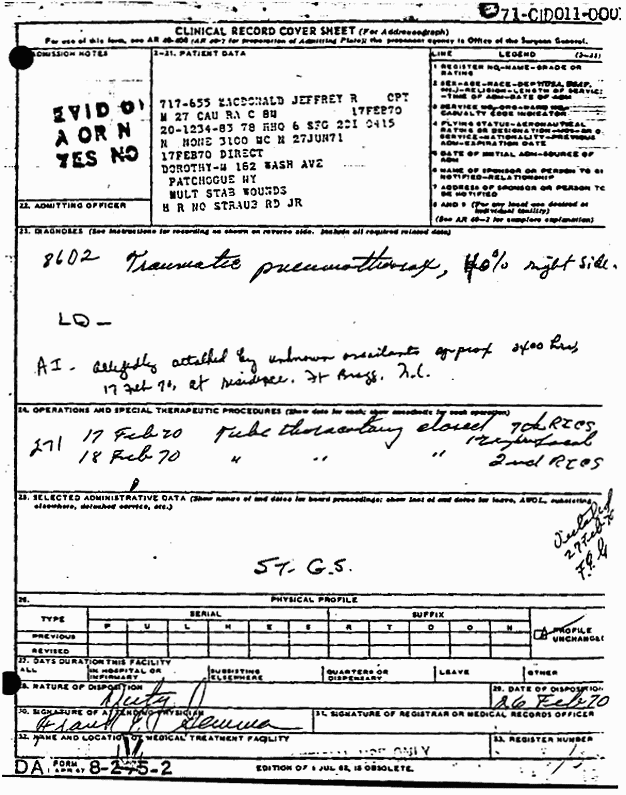 71-CID011-000
CLINICAL RECORD COVER SHEET (For Addressograph)
For use of this form, see AR 40-400 (AR for preparation of Admitting Plate); the proponent agency is Office of the Surgeon General.
ADMISSION NOTES
2-21. PATIENT DATA
LINE LEGEND
1 REGISTER NO-NAME-GRADE OR RATING
EVID
A OR N
YES NO
717-655 MACDONALD JEFFREY R CPT
M 27 CAU RA C 8M 17FEB70
20-1234-83 78 RHQ 6 SFG 0415
N NONE 3100 MC N 27JUN71
17FEB70 DIRECT
DOROTHY-M 162 WASH AVE
PATCHOGUE NY
MULT STAB WOUNDS
H R NO STRAUB RD JR
4 FLYING STATUS-AERONAUTICAL RATING OR DESIGNATION
SERVICE-NATIONALITY-PREVIOUS ADM-EXPIRATION DATE
5 DATE OF INITIAL ADM-SOURCE OF ADM
6 NAME OF SPONSOR OR PERSON TO BE NOTIFIED-RELATIONSHIP
7 ADDRESS OF SPONSOR OR PERSON TO BE NOTIFIED
8 AND 9 (For any local use desired at individual facility)
(See AR 40-2 for complete explanation)
22. ADMITTING OFFICER
23. DIAGNOSES (See instructions for recording as shown on reverse side. Include all required related data)
8602 Traumatic pneumothorax, 40% right side.
LD -
AI - allegedly attacked by unknown assailants approx 2400 hrs,
17 Feb 70, at residence, Ft Bragg, N.C.
24. OPERATIONS AND SPECIAL THERAPEUTIC PROCEDURES (Show date for each; show anesthetic for each operation)
271 17 Feb 70 Tube thoracotomy closed 7th RICS
18 Feb 70 " " " 2nd RICS
25. SELECTED ADMINISTRATIVE DATA (Show names of and dates for board proceedings; show inst of and dates for leave, AWOL, subsisting elsewhere, detached service, etc.)
27 Feb 70
ST- G.S.
26. PHYSICAL PROFILE
TYPE SERIAL SUFFIX
P U L H E S R T D O N
PREVIOUS
REVISED
PROFILE UNCHANGED
27. DAYS DURATION THIS FACILITY
ALL IN HOSPITAL OR INFIRMARY SUBSISTING ELSEWHERE QUARTERS OR DISPENSARY LEAVE OTHER
28. NATURE OF DISPOSITION
Duty
29. DATE OF DISPOSITION
26 Feb 70
30. SIGNATURE OF ATTENDING PHYSICIAN
31. SIGNATURE OF REGISTRAR OR MEDICAL RECORDS OFFICER
32. NAME AND LOCATION OF MEDICAL TREATMENT FACILITY
USE ONLY
33. REGISTER NUMBER
DA FORM 1 APR 67 8-275-2
EDITION OF 1 JUL 62, IS OBSOLETE.